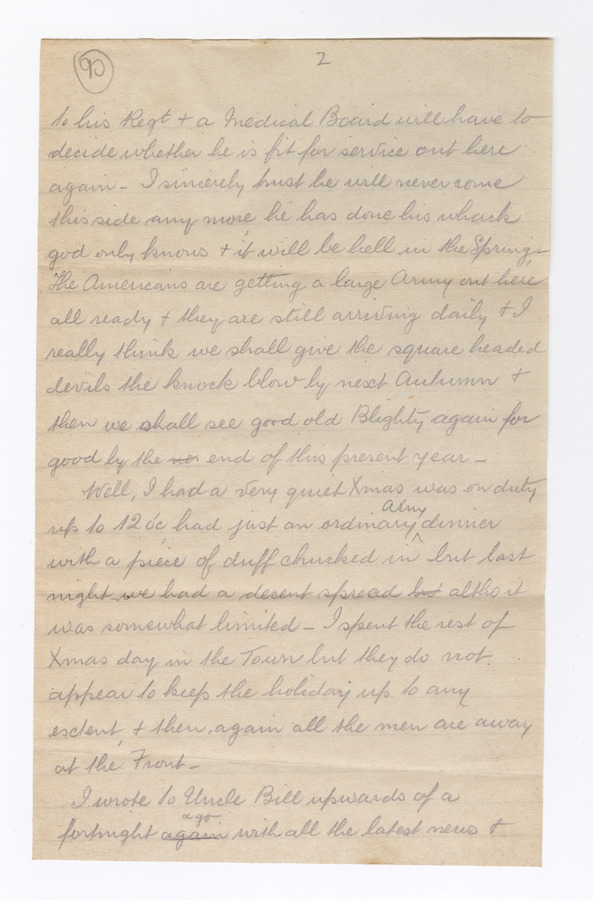 90
2
to his Regt + a Medical Board will have to
decide whether he is fit for service out here
again - I sincerely trust he will never come
this side any more he has done his whack
god only knows + it will be hell in the Spring -
The Americans are getting a large Army out here
all ready + they are still arriving daily + I
really think we shall give the square headed
devils the knock blow by next Autumn +
then we shall see good old Blighty again for
good by the end of this present year -
Well, I had a very quiet Xmas was on duty
up to 12 o'c, had just an ordinary Army dinner
with a piece of duff chucked in but last
night we had a decent spread but altho it
was somewhat limited - I spent the rest of
Xmas day in the Town but they do not
appear to keep the holiday up to any
exctent, + then again all the men are away
at the Front -
I wrote to Uncle Bill upwards of a
fortnight again ago with all the latest news +